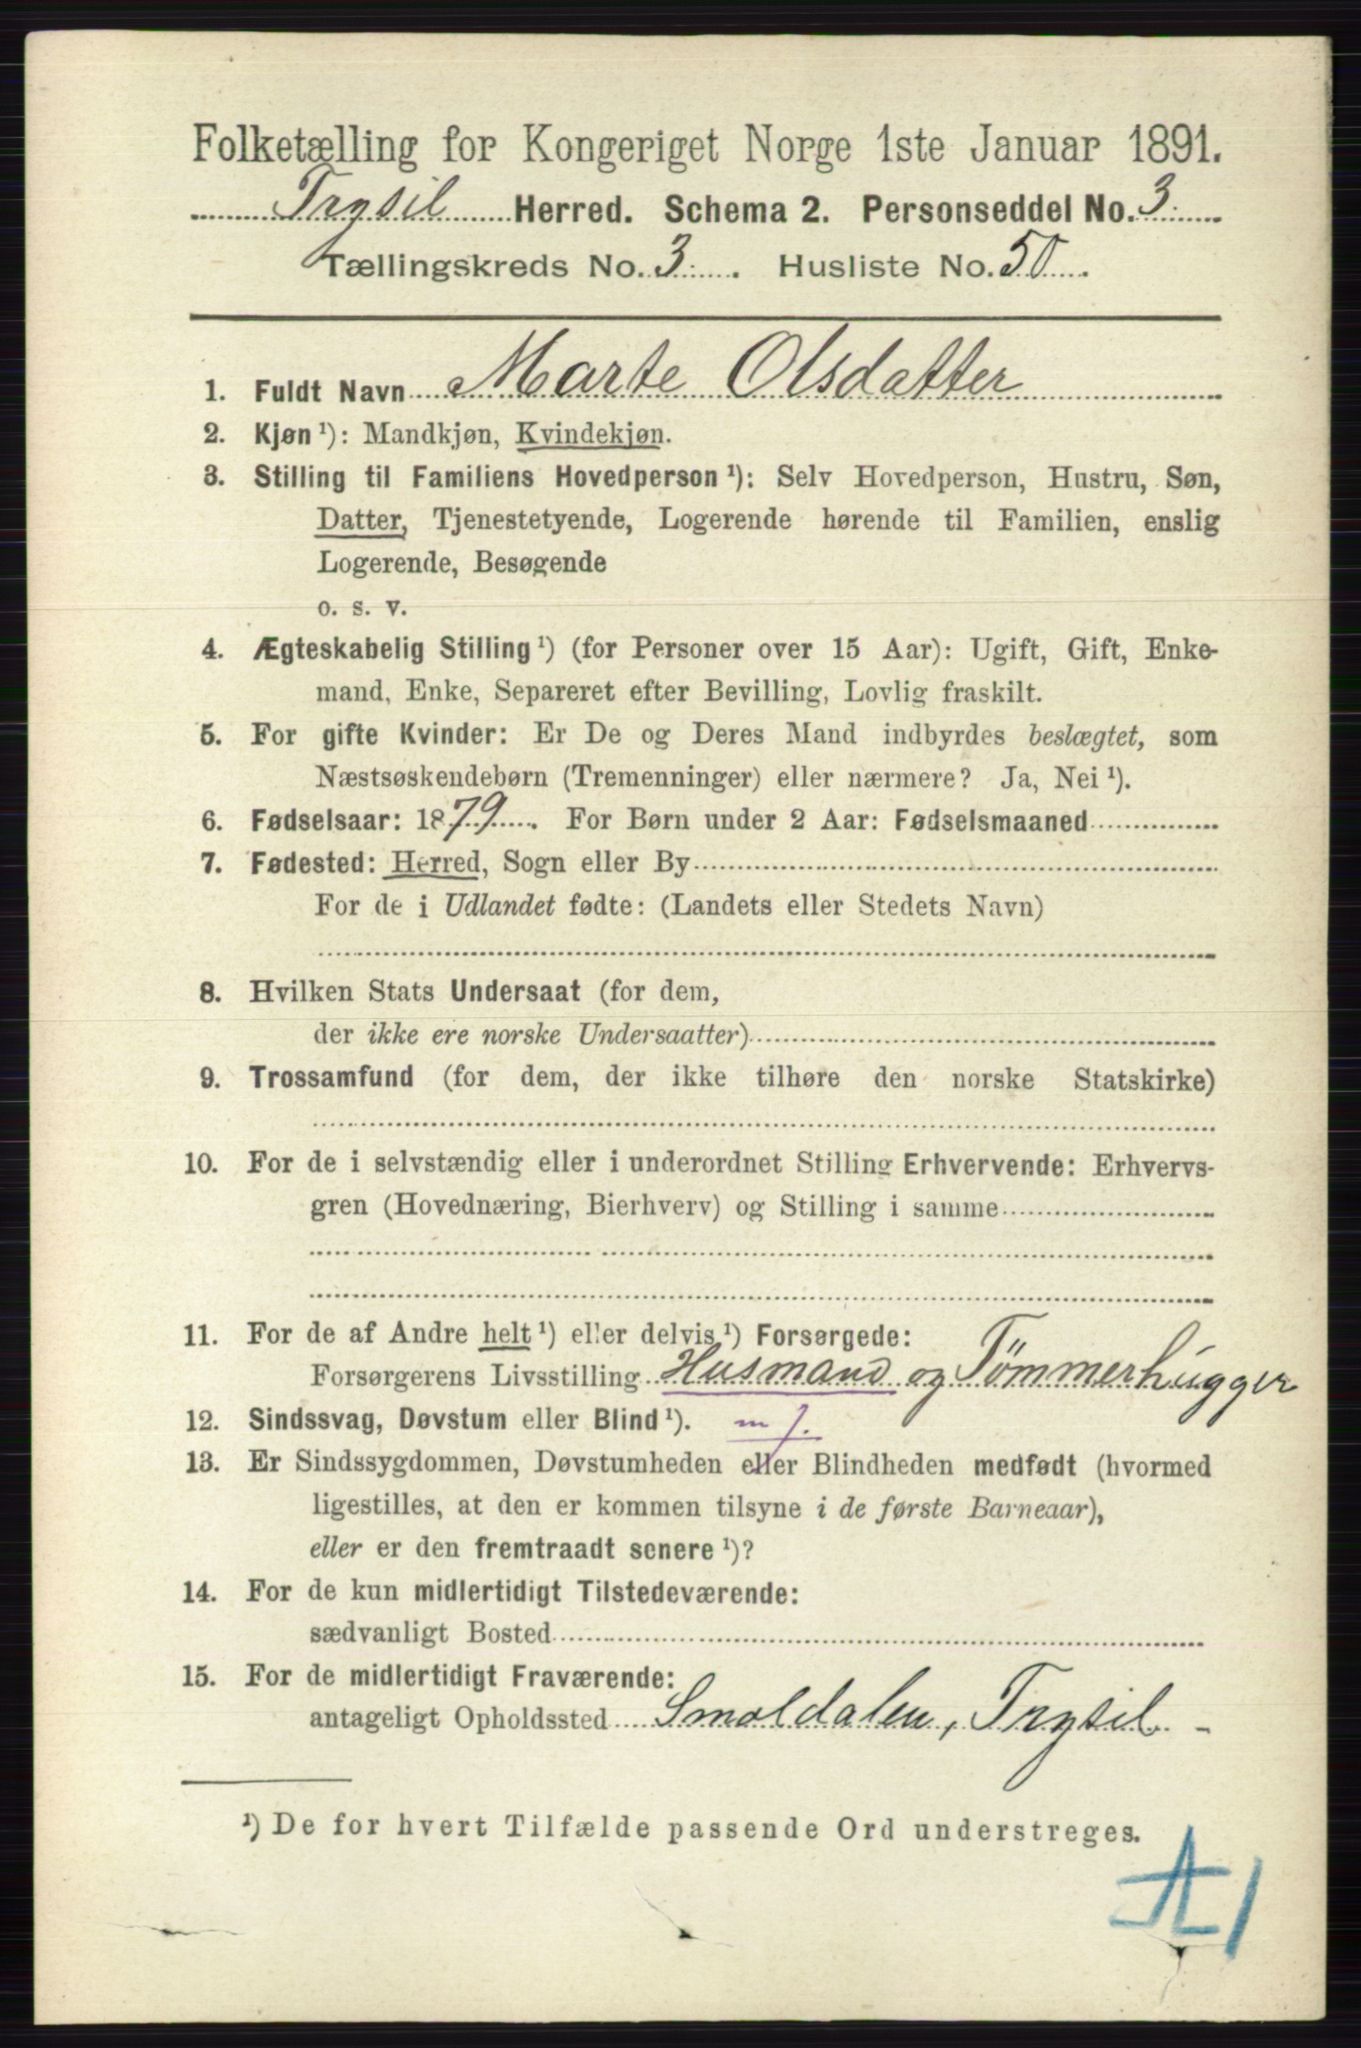 Folketælling for Kongeriget Norge 1ste Januar 1891.
Trysil Herred. Schema 2. Personseddel No. 3
Tællingskreds No. 3. Husliste No. 50.
1. Fuldt Navn Marte Olsdatter
2. Kjøn ¹): Mandkjøn, Kvindekjøn.
3. Stilling til Familiens Hovedperson ¹): Selv Hovedperson, Hustru, Søn,
Datter, Tjenestetyende, Logerende hørende til Familien, enslig
Logerende, Besøgende
o. s. v.
4. Ægteskabelig Stilling ¹) (for Personer over 15 Aar): Ugift, Gift, Enke-
mand, Enke, Separeret efter Bevilling, Lovlig fraskilt.
5. For gifte Kvinder: Er De og Deres Mand indbyrdes beslægtet, som
Næstsøskendebørn (Tremenninger) eller nærmere? Ja, Nei ¹).
6. Fødselsaar: 1879. For Børn under 2 Aar: Fødselsmaaned
7. Fødested: Herred, Sogn eller By
For de i Udlandet fødte: (Landets eller Stedets Navn)
8. Hvilken Stats Undersaat (for dem,
der ikke ere norske Undersaatter)
9. Trossamfund (for dem, der ikke tilhøre den norske Statskirke)
10. For de i selvstændig eller i underordnet Stilling Erhvervende: Erhvervs-
gren (Hovednæring, Bierhverv) og Stilling i samme
11. For de af Andre helt ¹) eller delvis ¹) Forsørgede:
Forsørgerens Livsstilling Husmand og Tömmerhugger
12. Sindssvag, Døvstum eller Blind ¹). m j.
13. Er Sindssygdommen, Døvstumheden eller Blindheden medfødt (hvormed
ligestilles, at den er kommen tilsyne i de første Barneaar),
eller er den fremtraadt senere ¹)?
14. For de kun midlertidigt Tilstedeværende:
sædvanligt Bosted
15. For de midlertidigt Fraværende:
antageligt Opholdssted Smoldalen, Trysil -
¹) De for hvert Tilfælde passende Ord understreges.